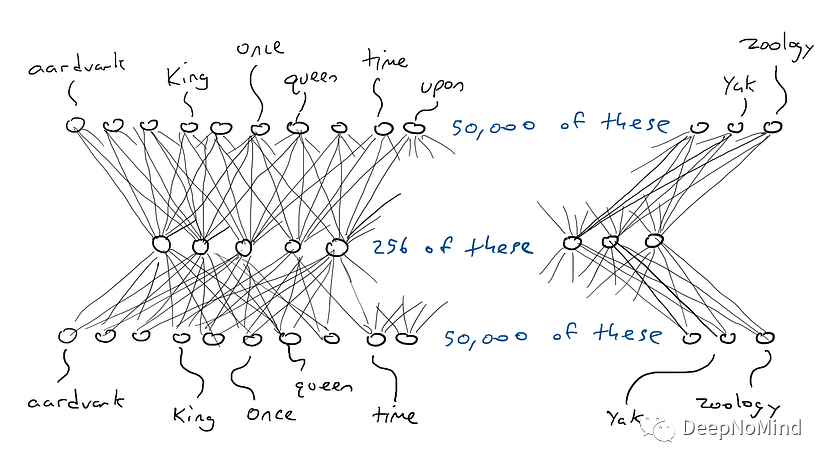 aardvark King once queen time upon Yak zoology
50,000 of these
256 of these
50,000 of these
aardvark King once queen time Yak zoology
DeepNoMind